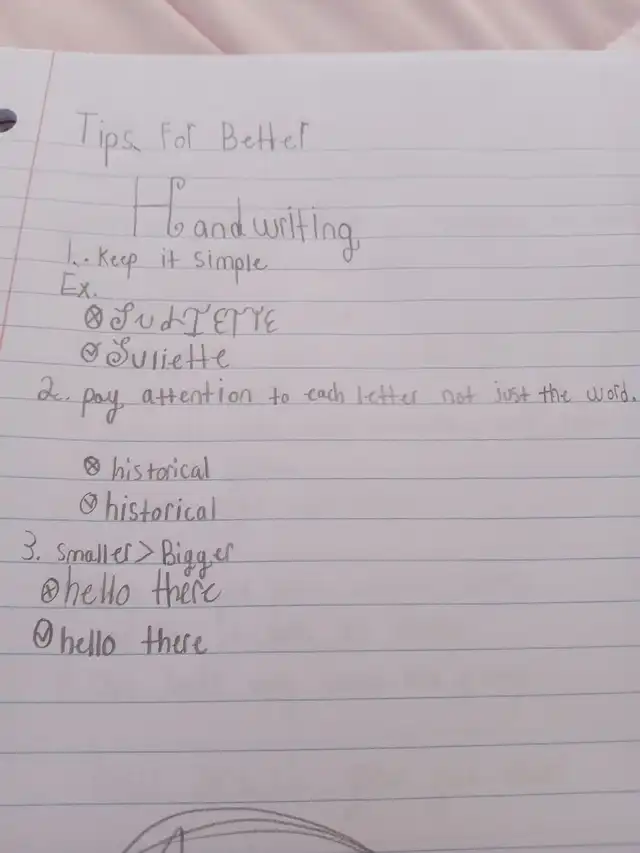 Tips For Better
Handwriting
1. Keep it simple
Ex.
ⓧ JuLIETTE
✓ Juliette
2. pay attention to each letter not just the word.
ⓧ historical
✓ historical
3. smaller > Bigger
ⓧ hello there
✓ hello there